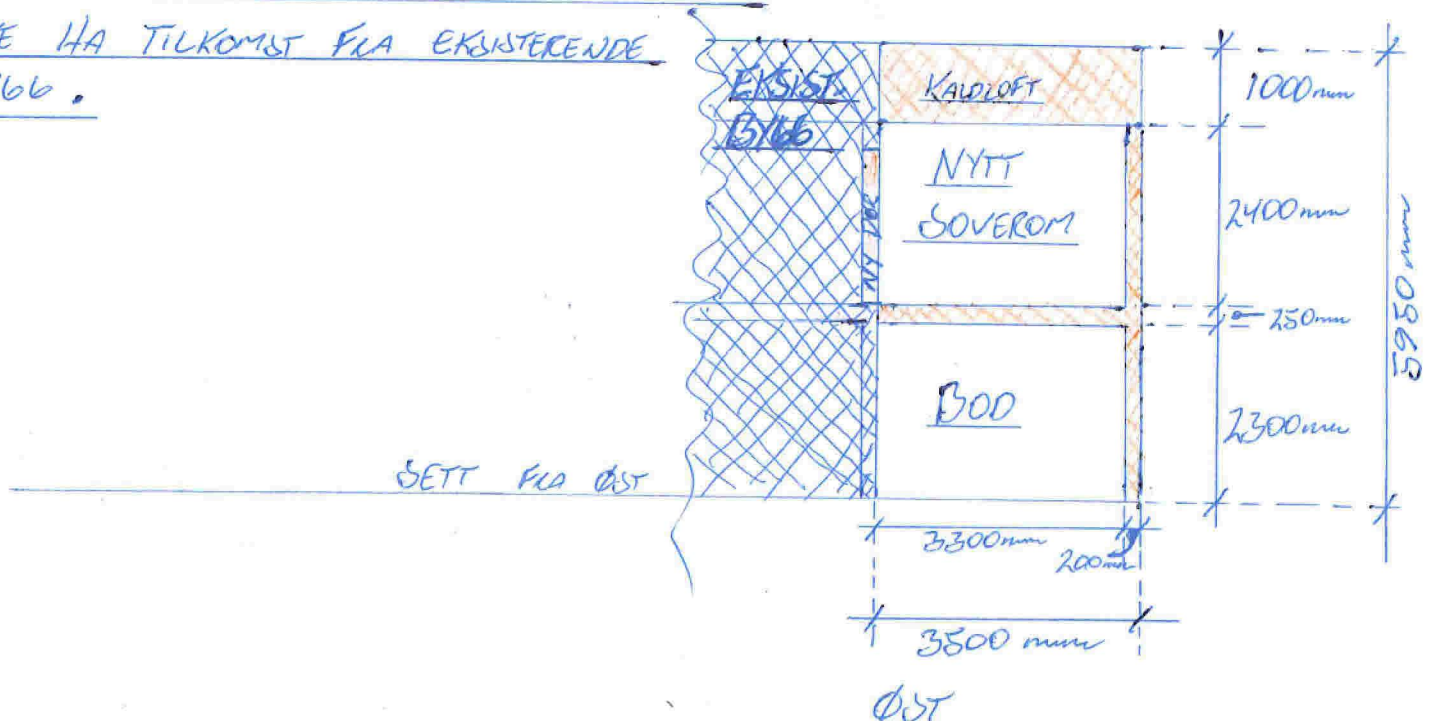 E HA TILKOMST FRA EKSISTERENDE
BYGG.
EKSIST.
BYGG
KALDLOFT
NYTT
SOVEROM
NY DØR
BOD
SETT FRA ØST
1000mm
2400mm
250mm
2300mm
5950mm
3300mm
200mm
3500mm
ØST